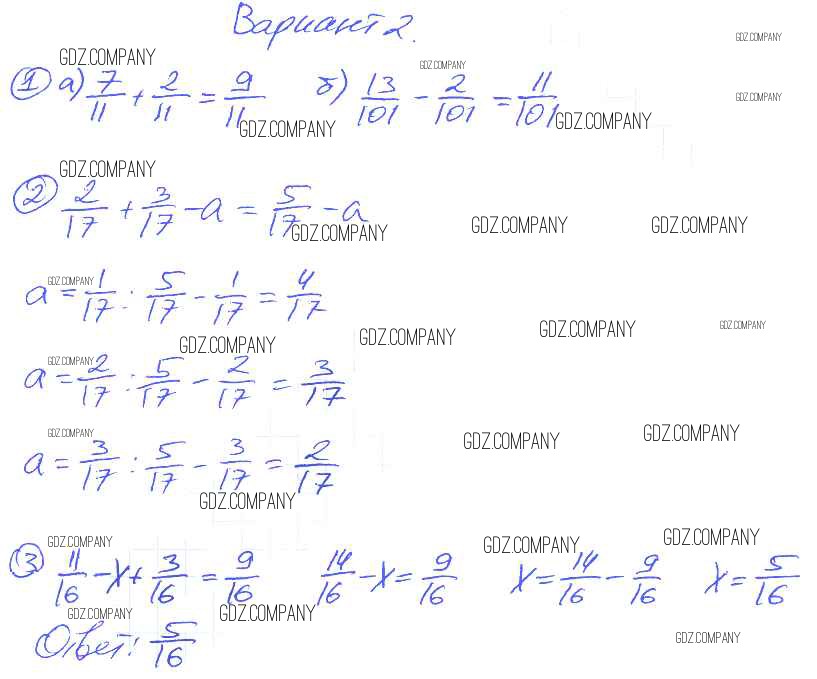 Вариант 2.
GDZ.COMPANY GDZ.COMPANY GDZ.COMPANY
① а) 7/11 + 2/11 = 9/11 б) 13/101 - 2/101 = 11/101
GDZ.COMPANY GDZ.COMPANY GDZ.COMPANY
GDZ.COMPANY
② 2/17 + 3/17 - a = 5/17 - a
GDZ.COMPANY GDZ.COMPANY GDZ.COMPANY
GDZ.COMPANY
a = 1/17 : 5/17 - 1/17 = 4/17
GDZ.COMPANY GDZ.COMPANY GDZ.COMPANY GDZ.COMPANY
GDZ.COMPANY
a = 2/17 : 5/17 - 2/17 = 3/17
GDZ.COMPANY GDZ.COMPANY GDZ.COMPANY
a = 3/17 : 5/17 - 3/17 = 2/17
GDZ.COMPANY
GDZ.COMPANY GDZ.COMPANY GDZ.COMPANY
③ 11/16 - x + 3/16 = 9/16 14/16 - x = 9/16 x = 14/16 - 9/16 x = 5/16
GDZ.COMPANY GDZ.COMPANY
Ответ: 5/16
GDZ.COMPANY